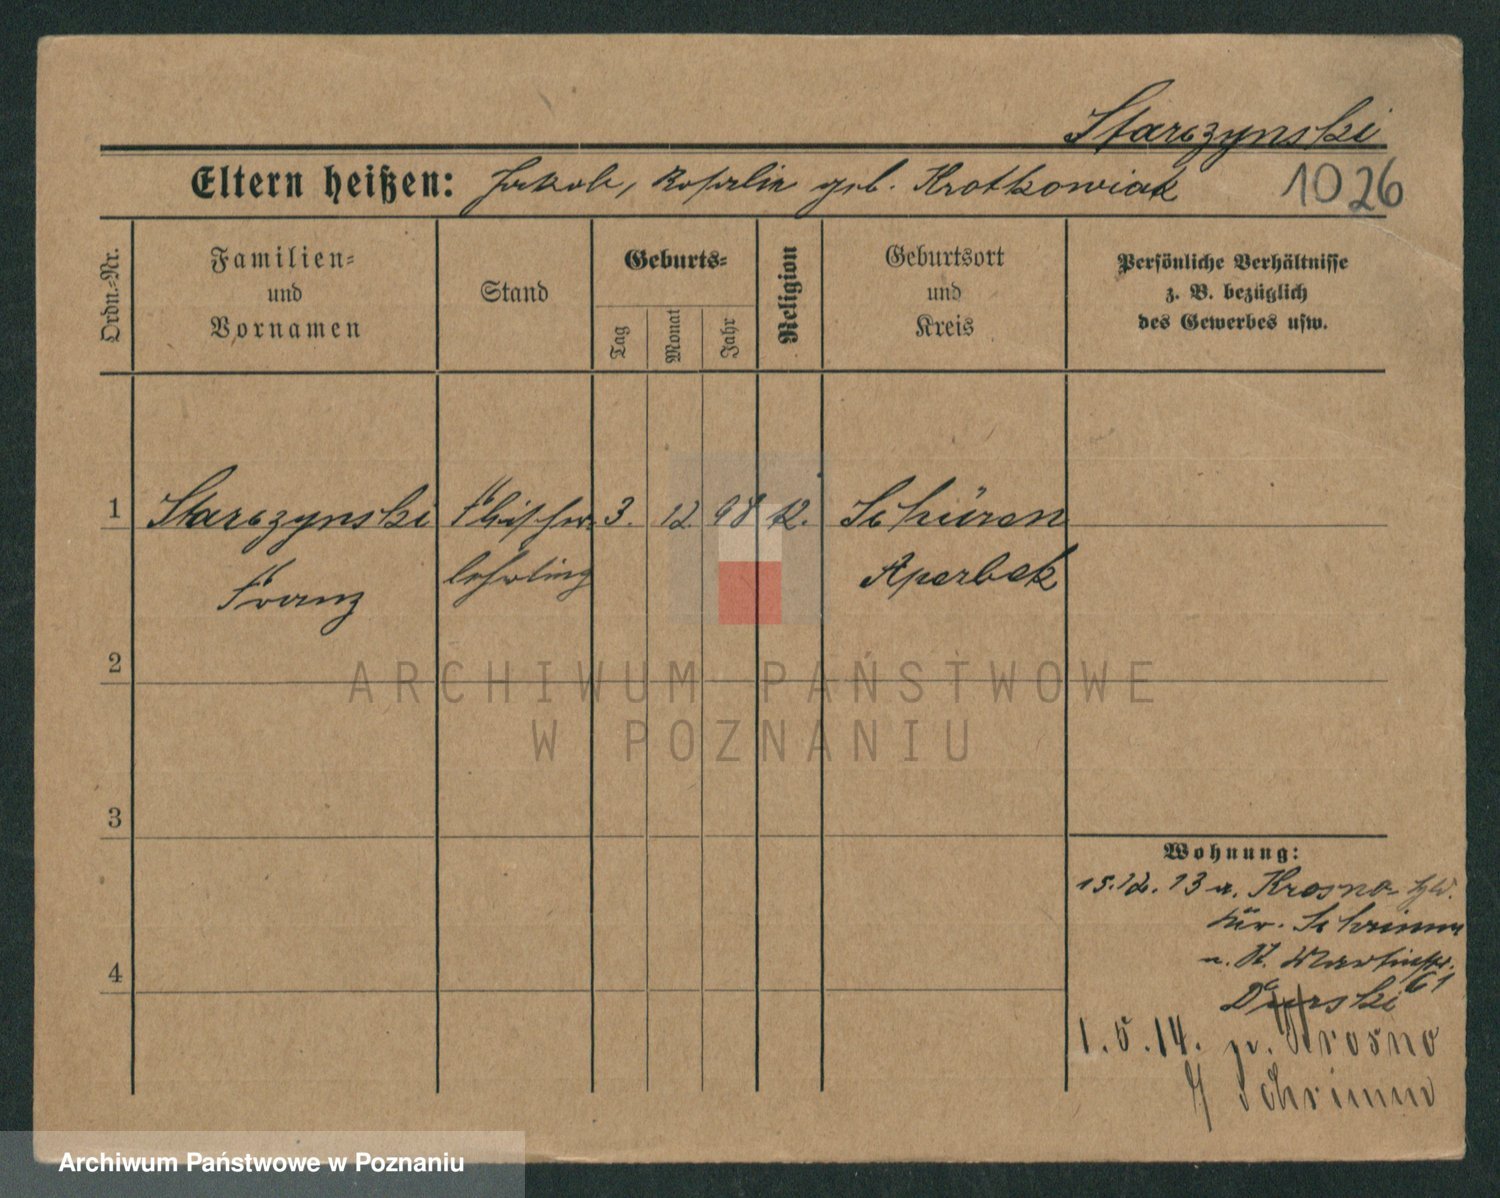 Starczynski
Eltern heißen: Jakob, Rosalie geb. Krotkowiak 1026
Ordn.-Nr.
Familien-
und
Vornamen
Stand
Geburts-
Tag
Monat
Jahr
Religion
Geburtsort
und
Kreis
Persönliche Verhältnisse
z. B. bezüglich
des Gewerbes usw.
1 Starczynski Fleischer- 3. 12. 98 k. Schüren
Franz lehrling Aperbek
2
ARCHIWUM PAŃSTWOWE
W POZNANIU
3
4
Wohnung:
15.12.13 v. Krosno
Kr. Schrimm
n. St. Martinstr.
61
Durski
1.5.14. n. Krosno
Schrimm
Archiwum Państwowe w Poznaniu